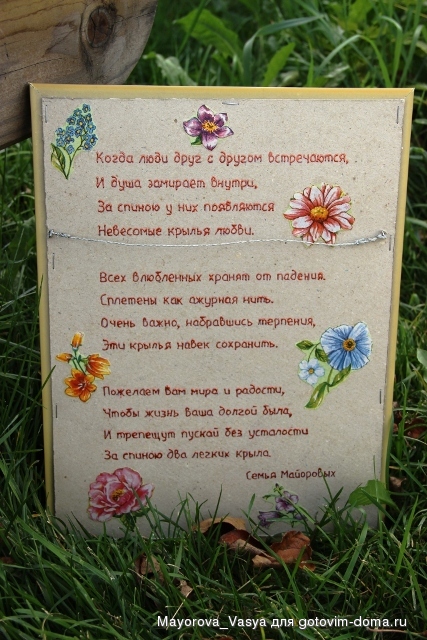 Когда люди друг с другом встречаются,
И душа замирает внутри,
За спиною у них появляются
Невесомые крылья любви.
Всех влюбленных хранят от падения.
Сплетены как ажурная нить.
Очень важно, набравшись терпения,
Эти крылья навек сохранить.
Пожелаем вам мира и радости,
Чтобы жизнь ваша долгой была,
И трепещут пускай без усталости
За спиною два легких крыла.
Семья Майоровых
Mayorova_Vasya для gotovim-doma.ru